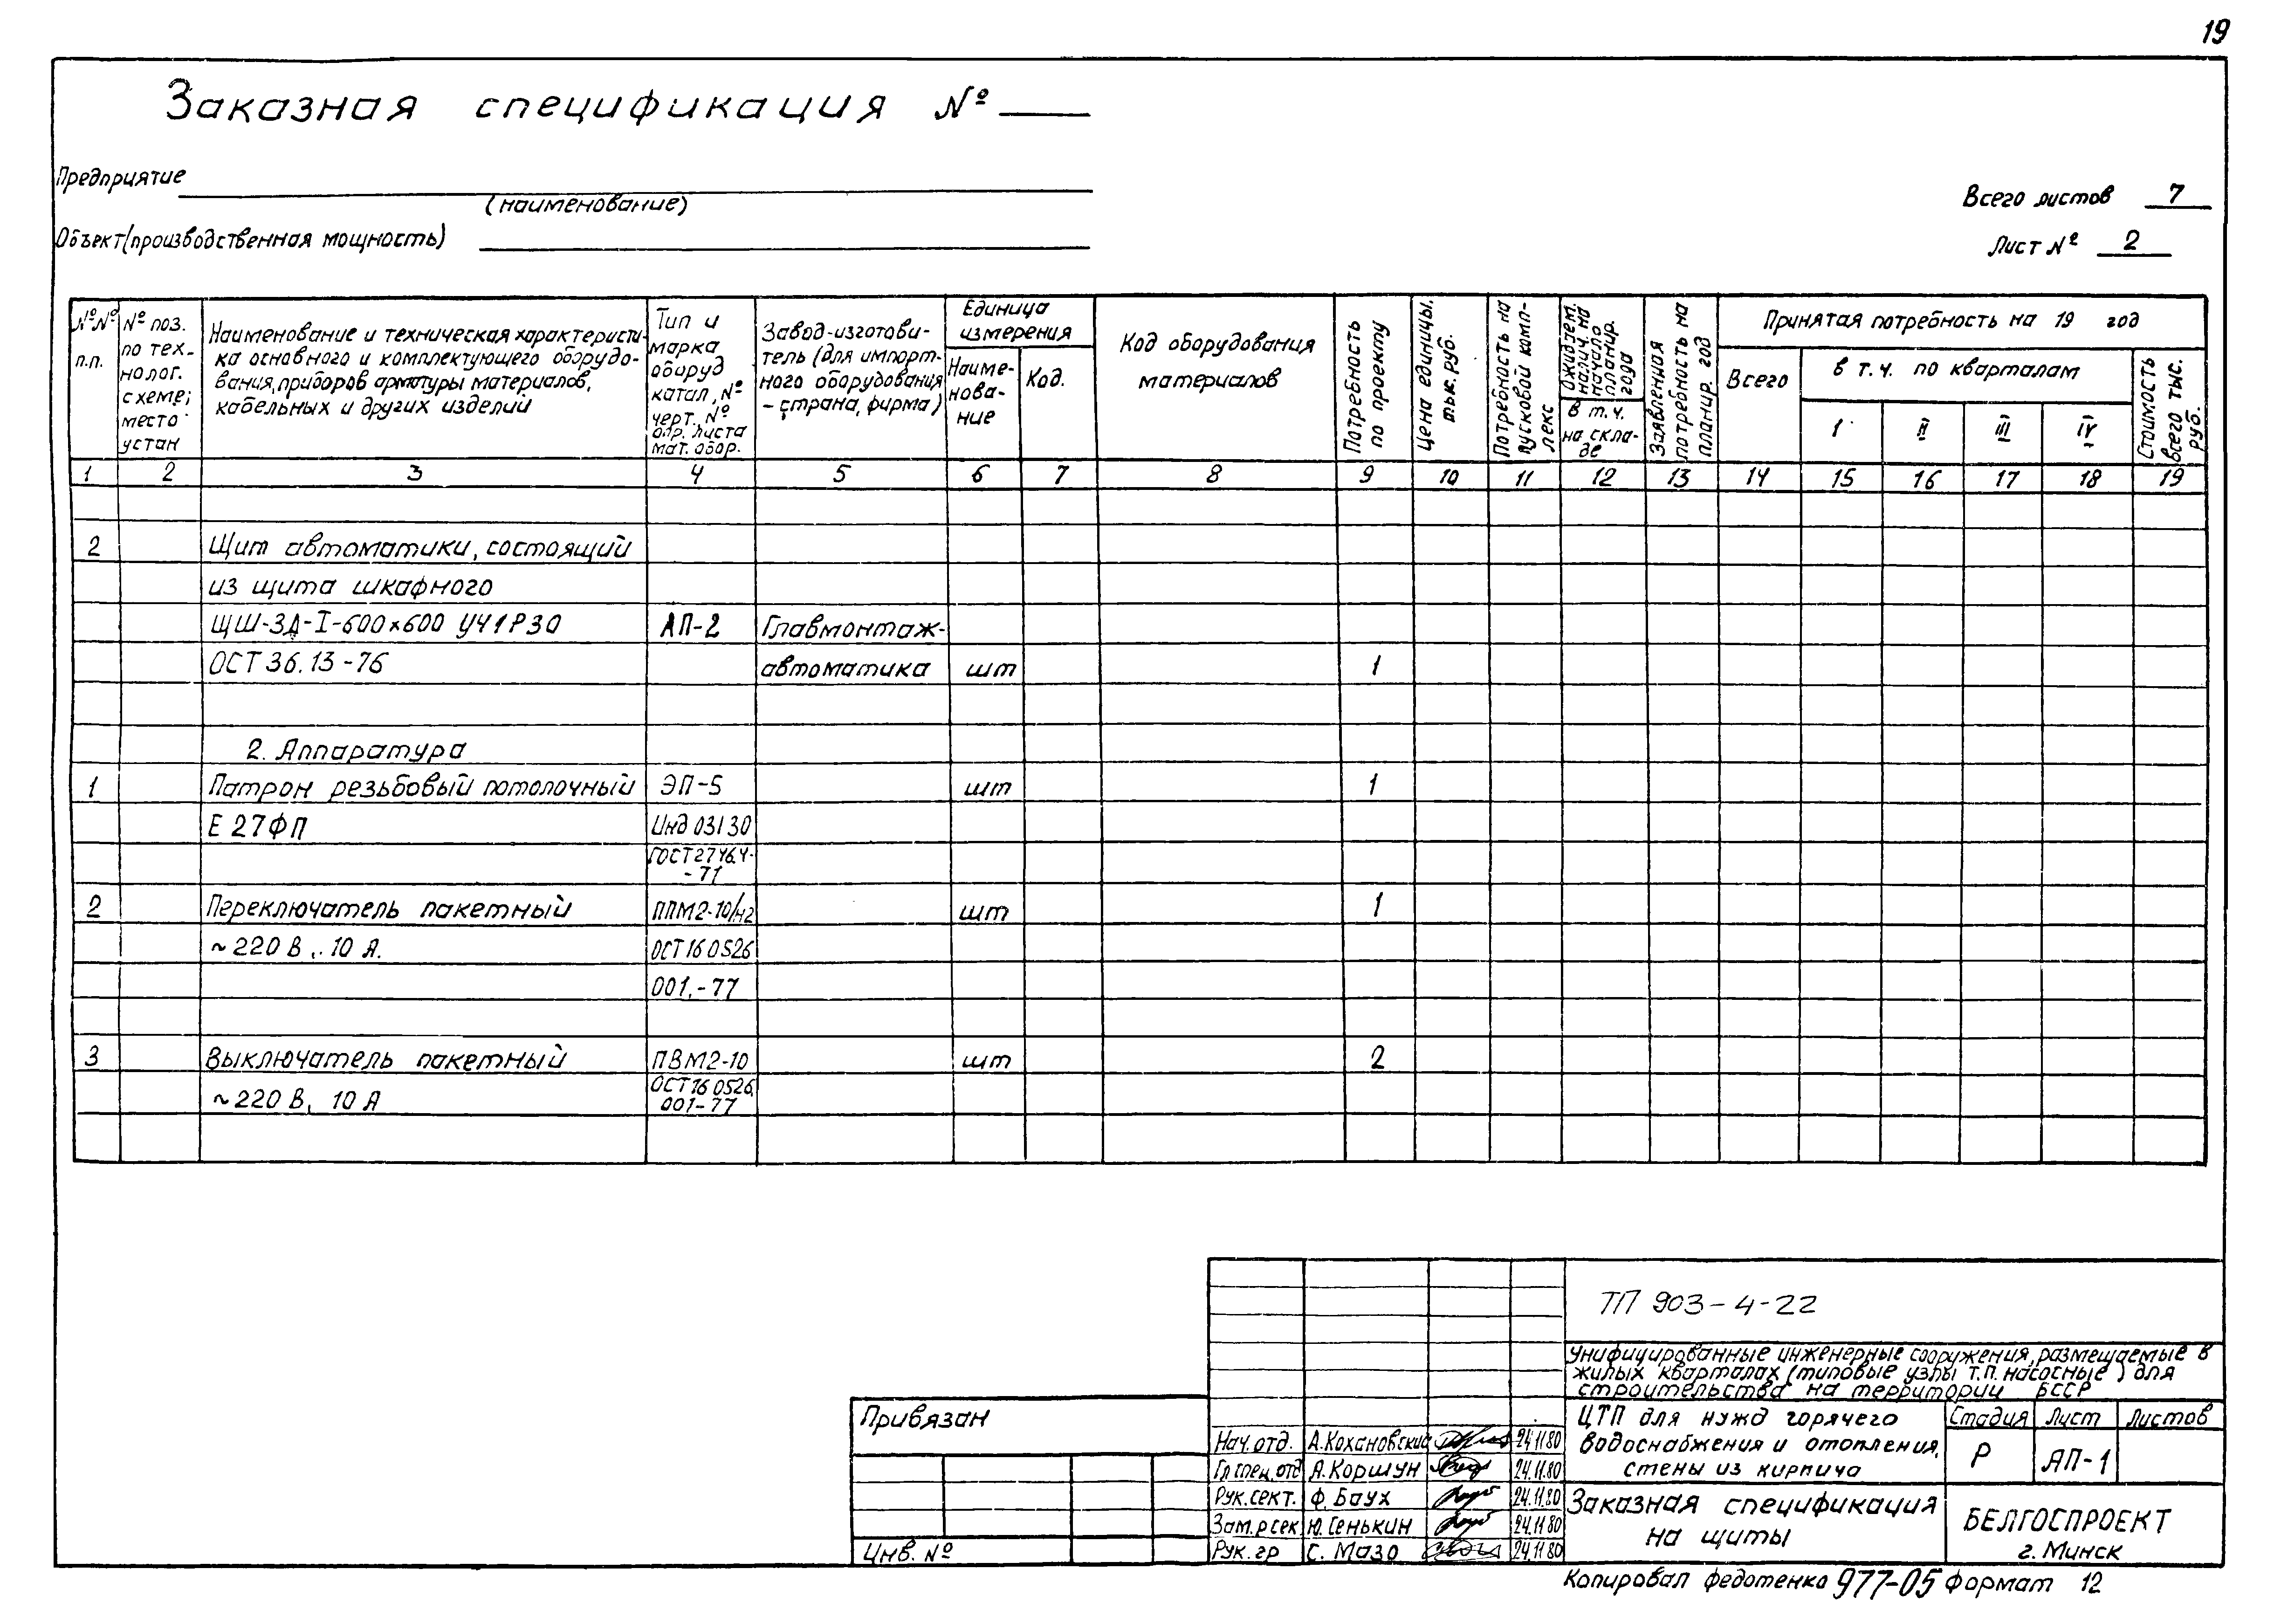 19
Заказная спецификация №
Предприятие
(наименование)
Объект (производственная мощность)
Всего листов 7
Лист № 2
№№ п.п.
№ поз. по тех- нолог. схеме; место устан
Наименование и техническая характеристи-
ка основного и комплектующего оборудо-
вания, приборов арматуры материалов,
кабельных и других изделий
Тип и марка оборуд катал, № черт. № опр. листа мат. обор.
Завод-изготови-
тель (для импорт-
ного оборудования
- страна, фирма)
Единица измерения
Наиме- нова- ние
Код.
Код оборудования
материалов
Потребность по проекту
Цена единицы, тыс. руб.
Потребность на пусковой комп- лекс
Ожидаем. налич. на начало планир. года
в т.ч. на скла- де
Заявленная потребность на планир. год
Принятая потребность на 19 год
Всего
в т.ч. по кварталам
I II III IV
Стоимость всего тыс. руб.
1 2 3 4 5 6 7 8 9 10 11 12 13 14 15 16 17 18 19
2 Щит автоматики, состоящий
из щита шкафного
ЩШ-ЗД-I-600×600 УЧ1Р30 АП-2 Главмонтаж-
ОСТ 36.13-76 автоматика шт 1
2. Аппаратура
1 Патрон резьбовый потолочный ЭП-5 шт 1
Е 27ФП Инд 03130
ГОСТ 2746.4-
-71
2 Переключатель пакетный ППМ2-10/н2 шт 1
~220 В,. 10 А. ОСТ 16 0526
001,-77
3 Выключатель пакетный ПВМ2-10 шт 2
~220 В, 10 А ОСТ 16 0526,
001-77
ТП 903-4-22
Унифицированные инженерные сооружения, размещаемые в
жилых кварталах (типовые узлы т.п. насосные) для
строительства на территории БССР
Привязан
Инв. №
Нач. отд. А. Кохановский 24.11.80
Гл спец. отд А. Коршун 24.11.80
Рук. сект. Ф. Баух 24.11.80
Зам. р сек Ю. Сенькин 24.11.80
Рук. гр С. Мазо 24.11.80
ЦТП для нужд горячего
водоснабжения и отопления,
стены из кирпича
Стадия Лист Листов
Р АП-1
Заказная спецификация
на щиты
БЕЛГОСПРОЕКТ
г. Минск
Копировал Федотенко 977-05 Формат 12